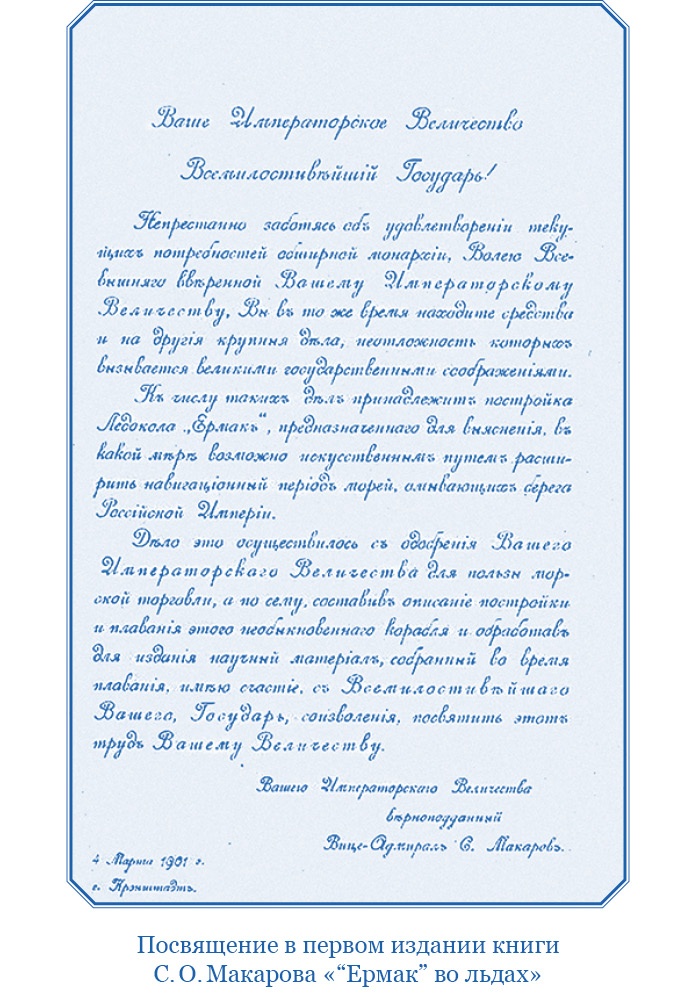 Ваше Императорское Величество
Всемилостивѣйшій Государь!
Непрестанно заботясь объ удовлетвореніи теку-
щихъ потребностей обширной монархіи, Волею Все-
вышняго ввѣренной Вашему Императорскому
Величеству, Вы въ то же время находите средства
и на другія крупныя дѣла, неотложность которыхъ
вызывается великими государственными соображеніями.
Къ числу такихъ дѣлъ принадлежитъ постройка
Ледокола „Ермакъ“, предназначеннаго для выясненія, въ
какой мѣрѣ возможно искусственнымъ путемъ расши-
рить навигаціонный періодъ морей, омывающихъ берега
Россійской Имперіи.
Дѣло это осуществилось съ одобренія Вашего
Императорскаго Величества для пользы мор-
ской торговли, а по сему, составивъ описаніе постройки
и плаванія этого необыкновеннаго корабля и обработавъ
для изданія научный матеріалъ, собранный во время
плаванія, имѣю счастіе, съ Всемилостивѣйшаго
Вашего, Государь, соизволенія, посвятить этотъ
трудъ Вашему Величеству.
Вашего Императорскаго Величества
вѣрноподданный
Вице-Адмиралъ С. Макаровъ.
4 Марта 1901 г.
г. Кронштадтъ.
Посвящение в первом издании книги
С. О. Макарова «“Ермак” во льдах»